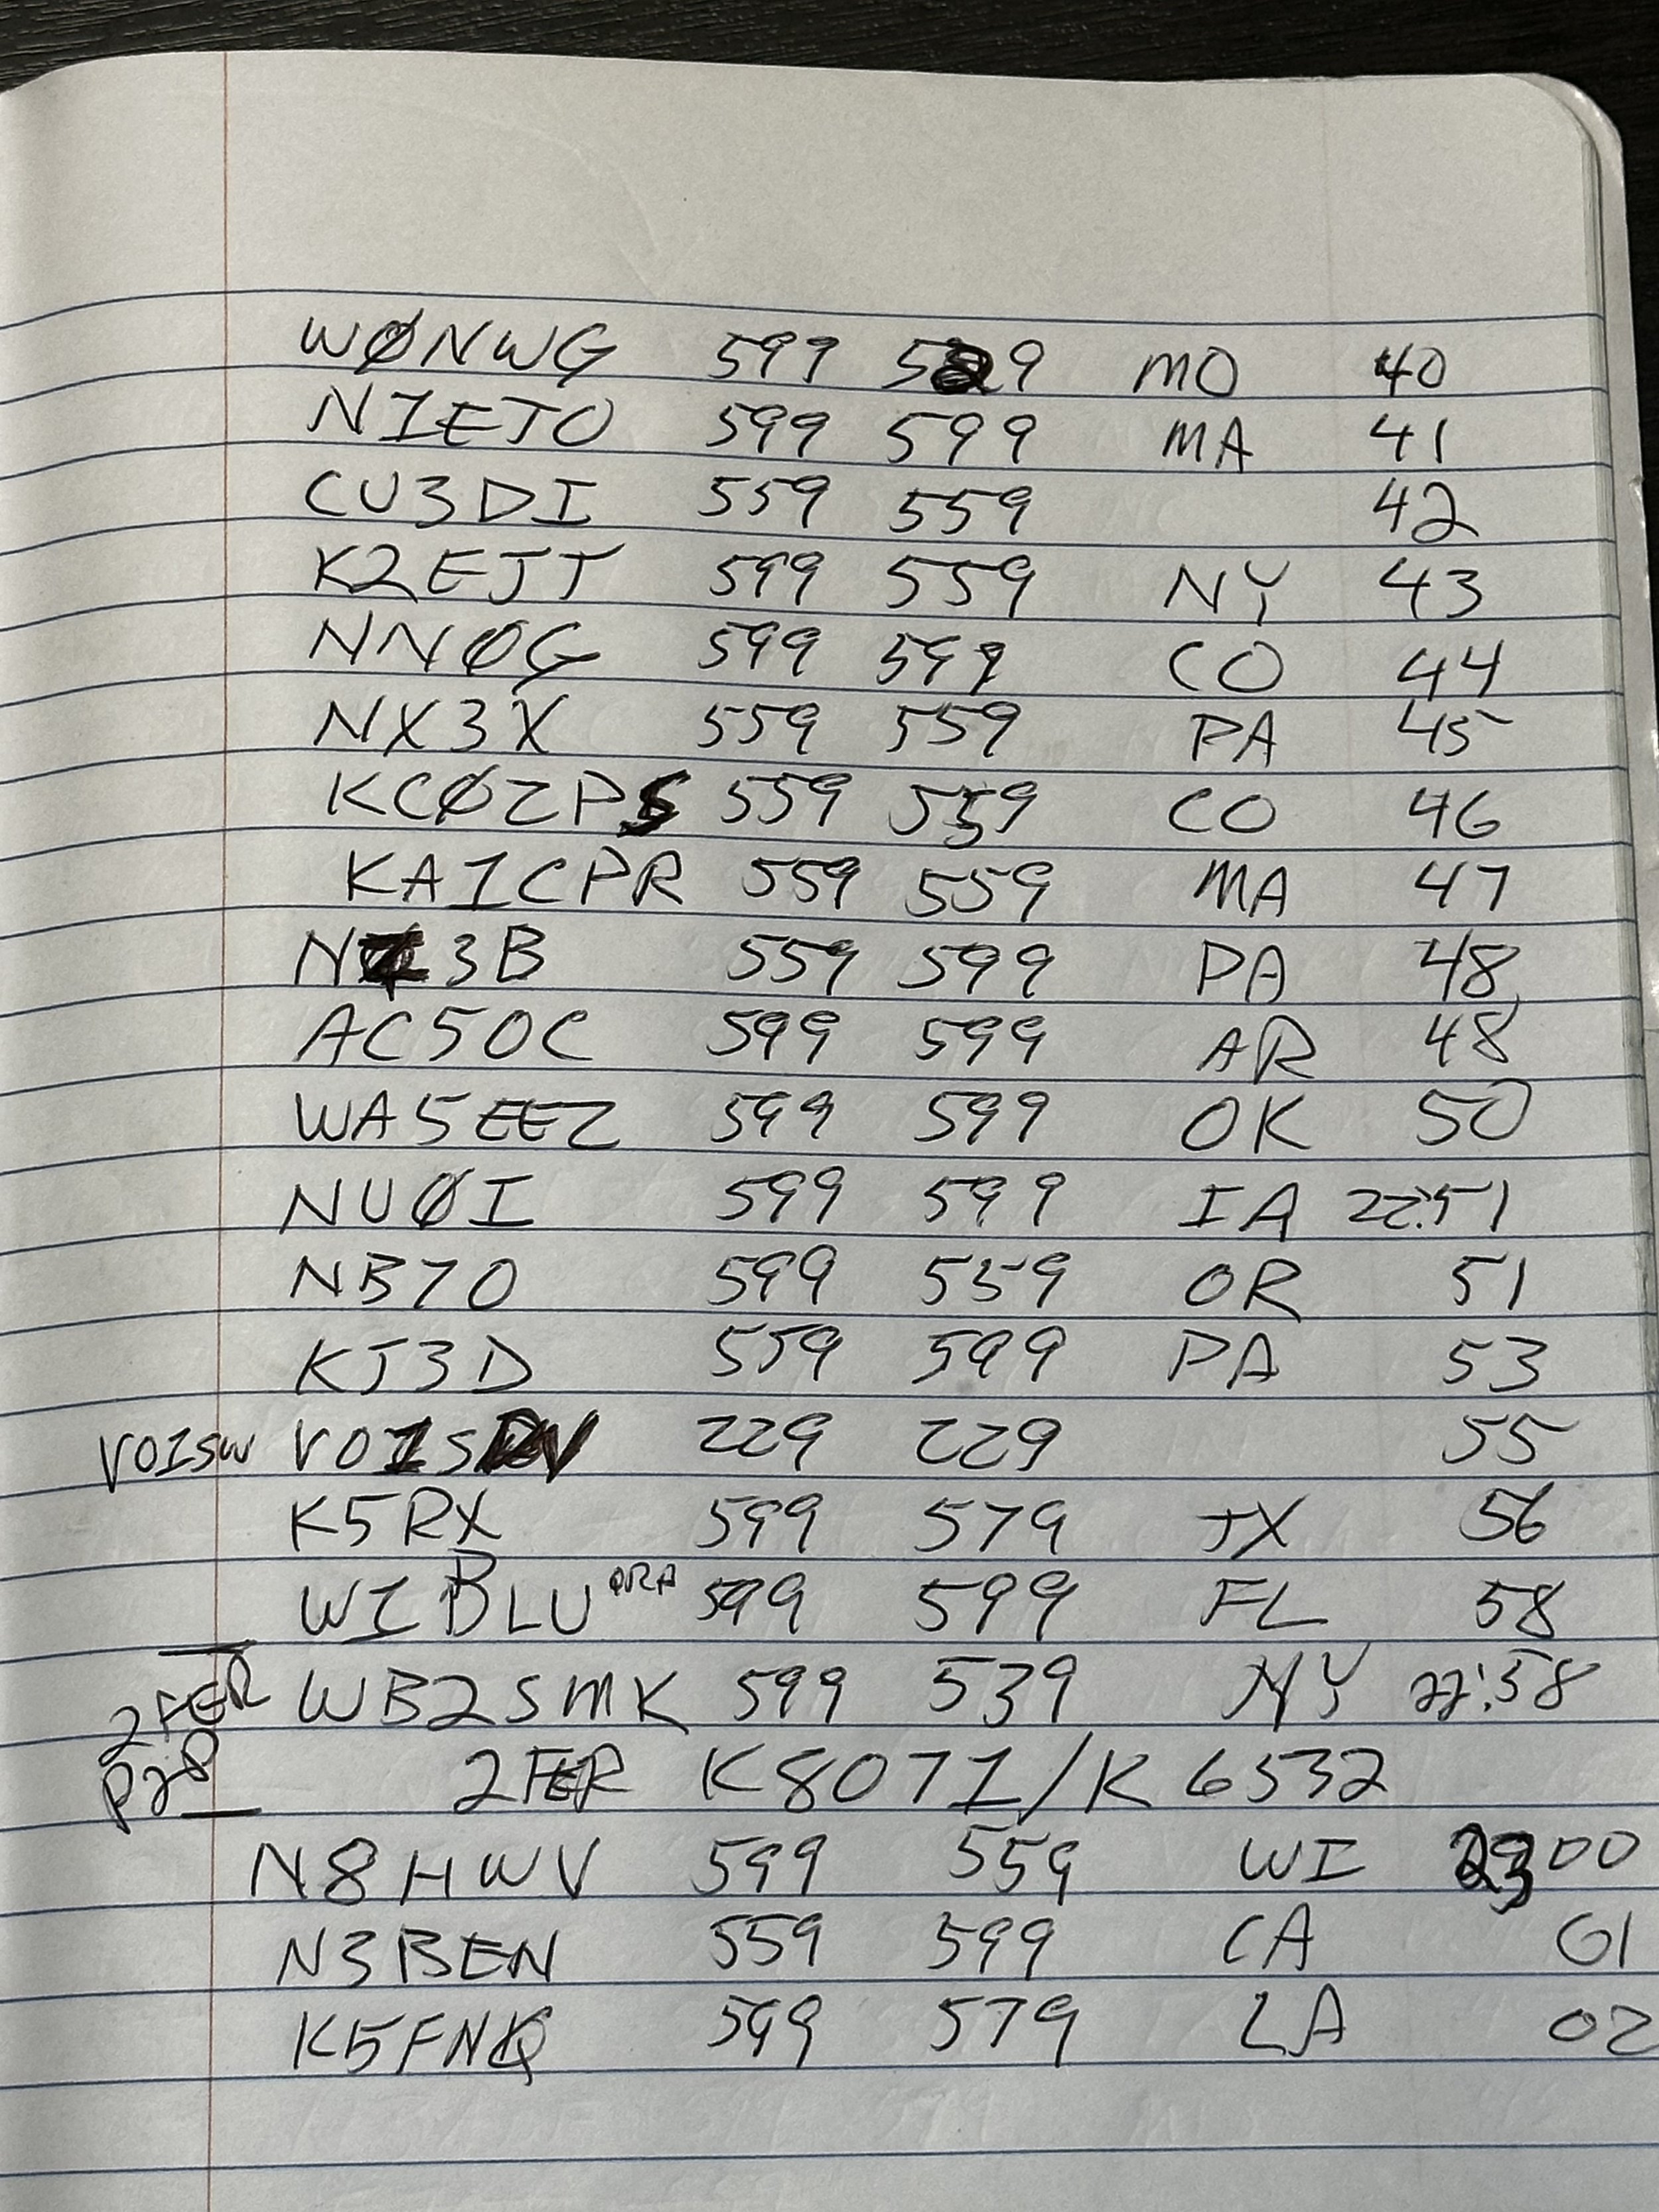 WØNWG 599 529 MO 40
N1ETO 599 599 MA 41
CU3DI 559 559 42
K2EJT 599 559 NY 43
NNØG 599 599 CO 44
NX3X 559 559 PA 45
KCØZPS 559 559 CO 46
KA1CPR 559 559 MA 47
N 3B 559 599 PA 48
AC5OC 599 599 AR 48
WA5EEZ 599 599 OK 50
NUØI 599 599 IA 22:51
NB7O 599 559 OR 51
KJ3D 559 599 PA 53
VO1SW VO1S 229 229 55
K5RX 599 579 TX 56
W1BLU 599 599 FL 58
2FER WB2SMK 599 539 NY 22:58
P2P 2FER K8071/K6532
N8HWV 599 559 WI 2300
N3BEN 559 599 CA 01
K5FNQ 599 579 LA 02